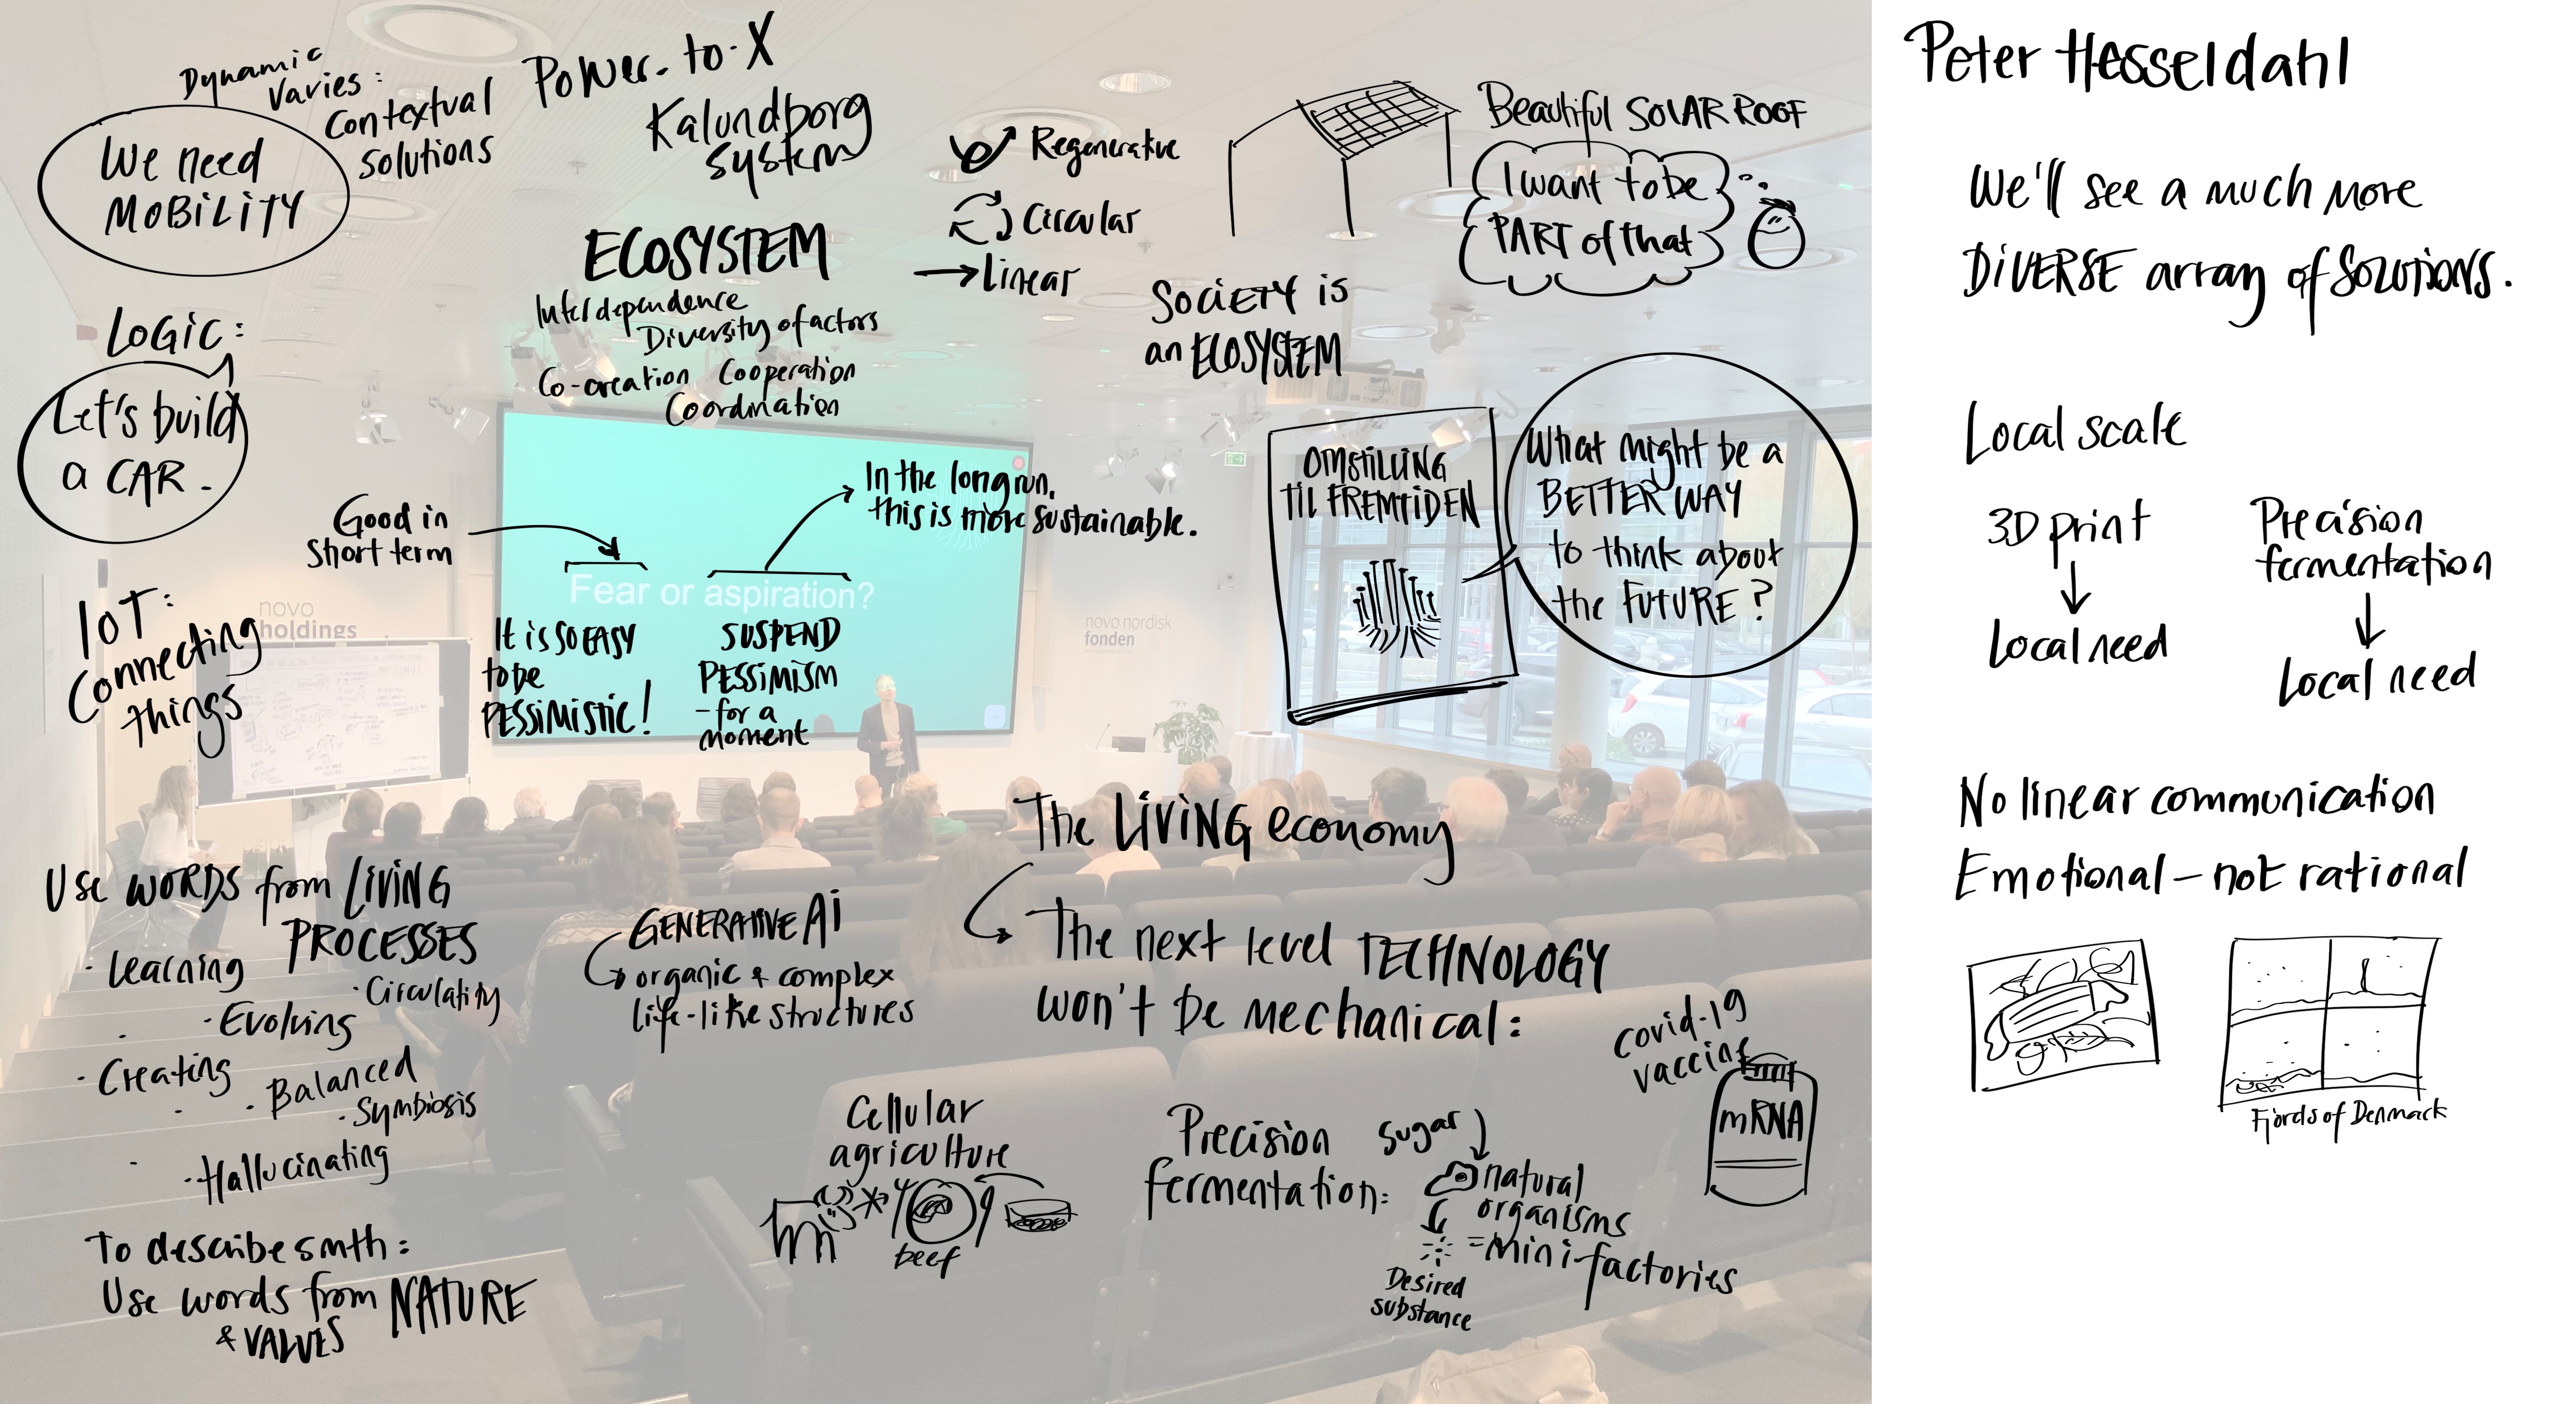 Dynamic
Varies:
Contextual
solutions
We need
MOBILITY
LOGIC:
Let's build
a CAR.
IoT:
Connecting
things
Power-to-X
Kalundborg
system
ECOSYSTEM
Interdependence
Diversity of actors
Co-creation Cooperation
Coordination
Regenerative
Circular
Linear
Beautiful SOLAR ROOF
I want to be
PART of that
SOCIETY is
an ECOSYSTEM
OMSTILLING
TIL FREMTIDEN
What might be a
BETTER WAY
to think about
the FUTURE?
Good in
short term
In the long run,
this is more sustainable.
Fear or aspiration?
It is SO EASY
to be
PESSIMISTIC!
SUSPEND
PESSIMISM
- for a
moment
novo
holdings
novo nordisk
fonden
The LIVING economy
The next level TECHNOLOGY
won't be mechanical:
Use WORDS from LIVING
PROCESSES
· Learning
· Circularity
· Evolving
· Creating
· Balanced
· Symbiosis
· Hallucinating
To describe smth:
Use words from NATURE
& VALUES
GENERATIVE Ai
organic + complex
life-like structures
Cellular
agriculture
beef
Precision
fermentation:
sugar
natural
organisms
= mini-factories
Desired
substance
covid-19
vaccine
mRNA
Peter Hesseldahl
We'll see a much more
DIVERSE array of SOLUTIONS.
Local scale
3D print
Local need
Precision
fermentation
Local need
No linear communication
Emotional – not rational
Fjords of Denmark